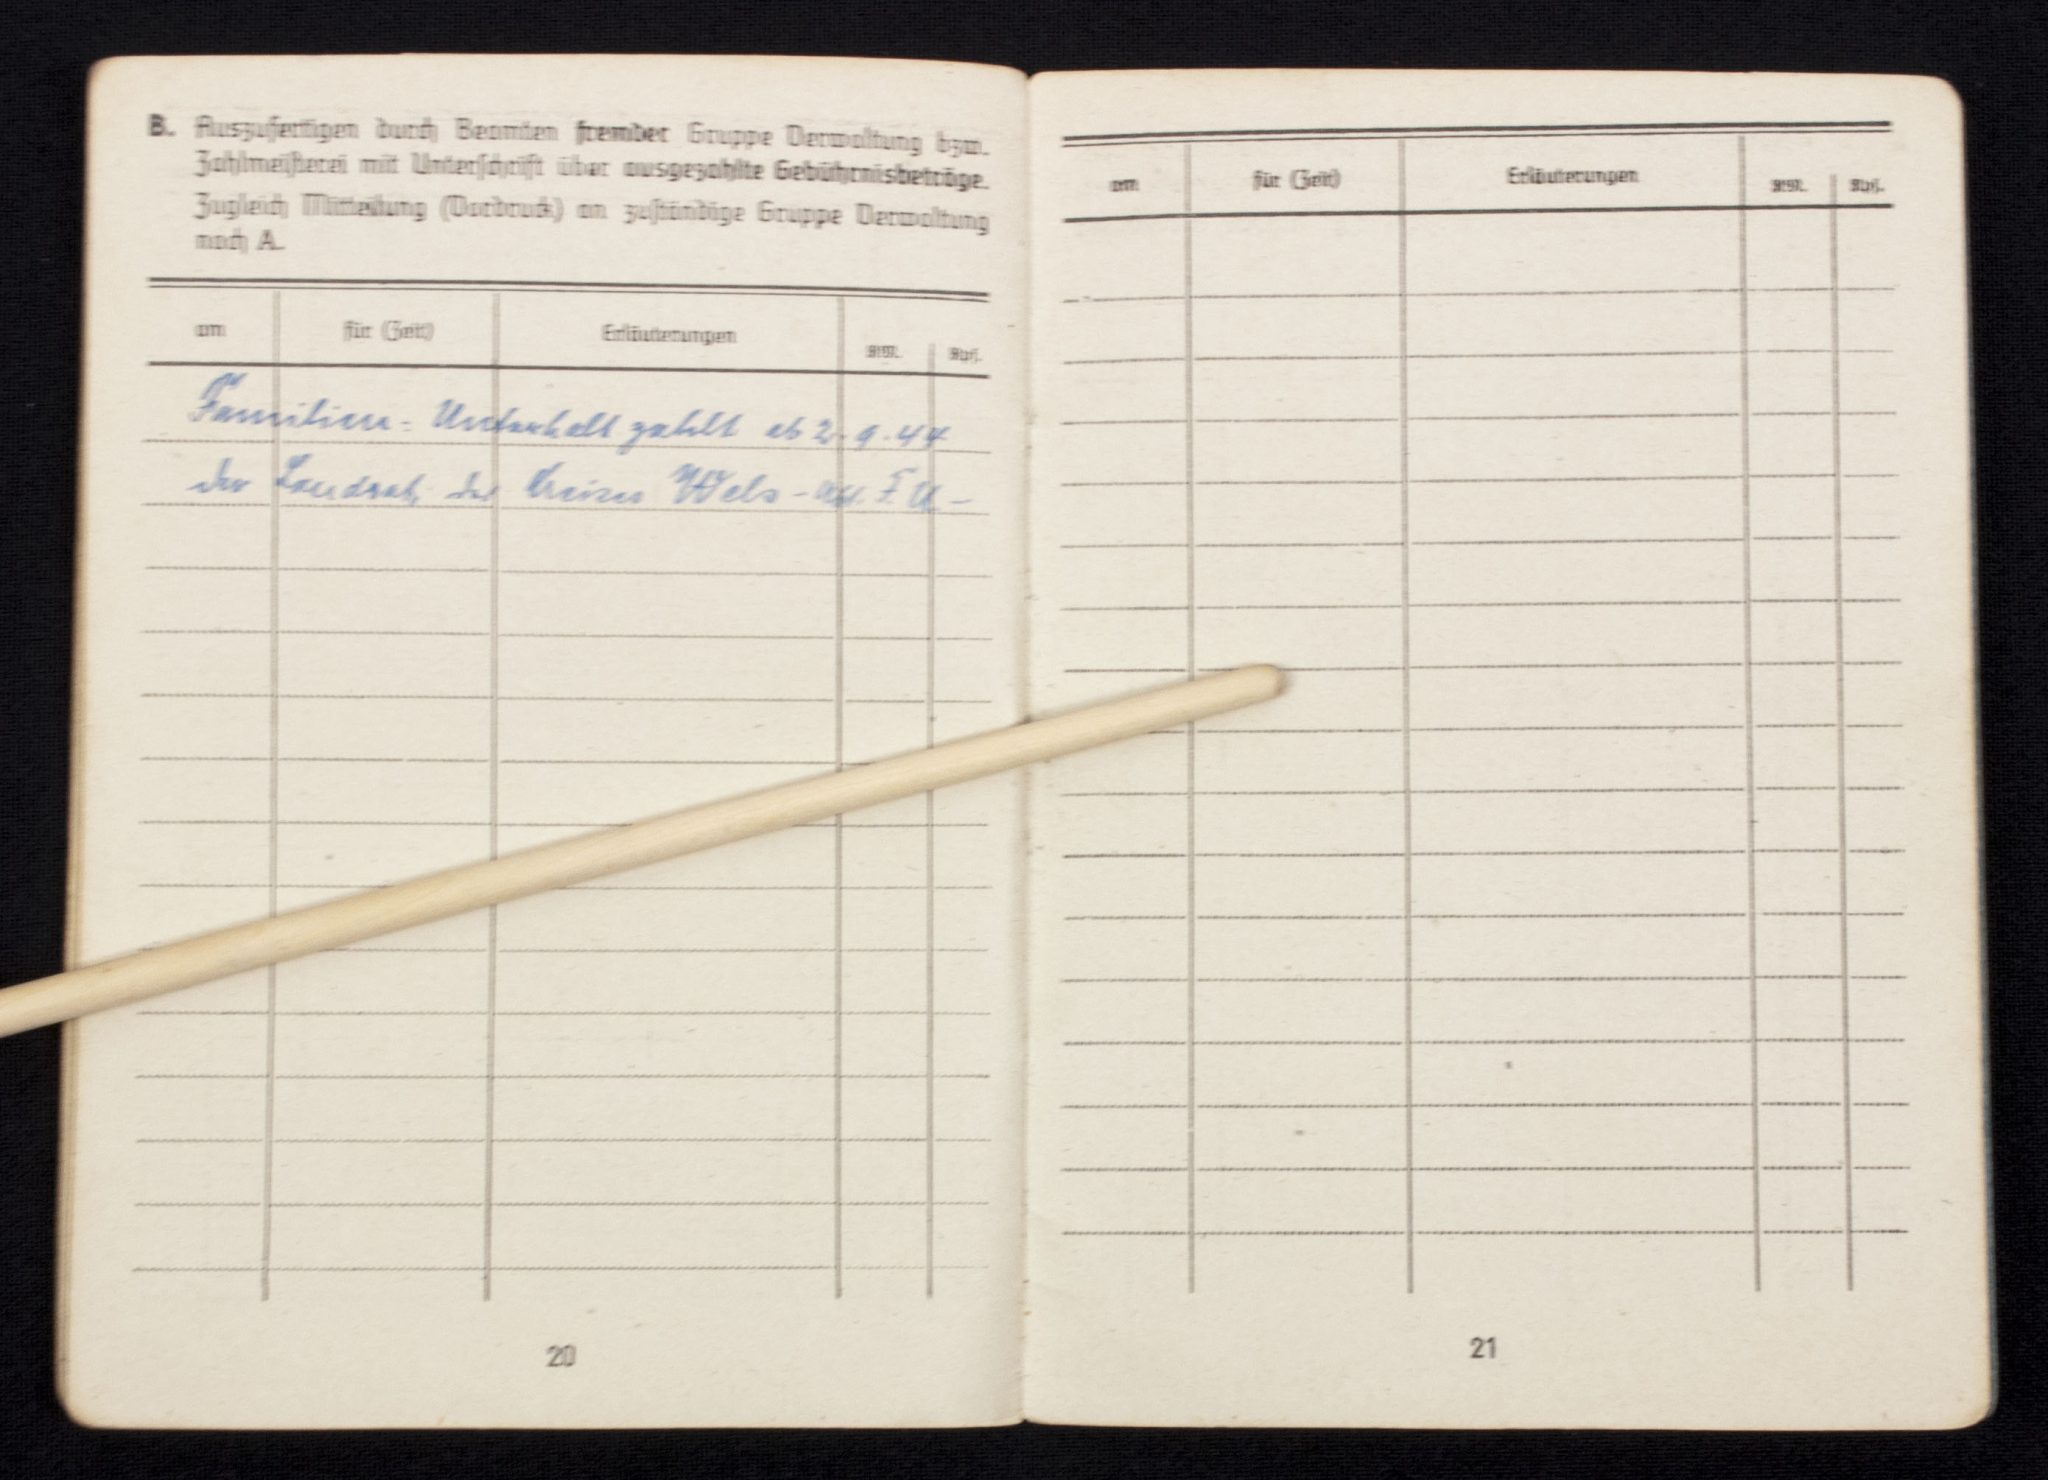 B. Auszufertigen durch Beamten fremder Gruppe Verwaltung bzw.
Zahlmeisterei mit Unterschrift über ausgezahlte Gebührnisbeträge.
Zugleich Mitteilung (Vordruck) an zuständige Gruppe Verwaltung
nach A.
am für (Zeit) Erläuterungen RM. Rpf.
Familien-Unterhalt zahlt ab 2.9.44
der Landrat des Kreises Wels - F.U. -
20
am für (Zeit) Erläuterungen RM. Rpf.
21